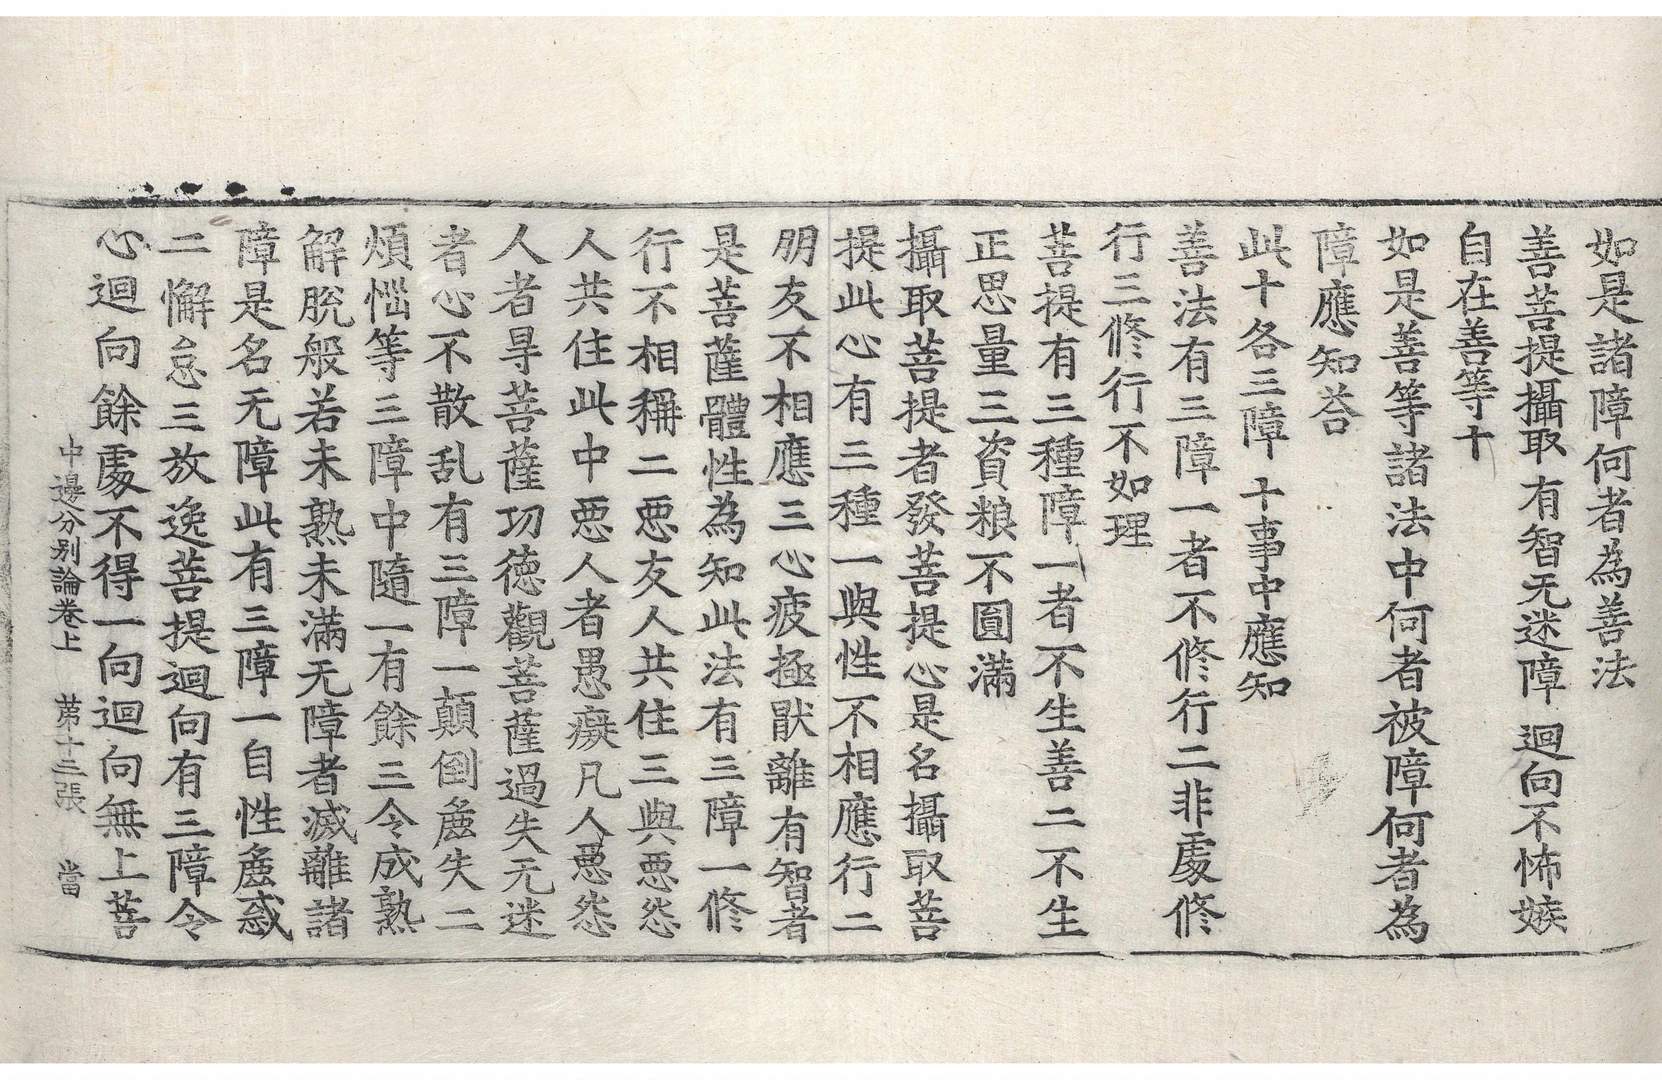 如是諸障何者為善法
善菩提攝取 有智无迷障 迴向不怖嫉
自在善等十
如是善等諸法中何者被障何者為
障應知荅
此十各三障 十事中應知
善法有三障一者不修行二非處修
行三修行不如理
菩提有三種障一者不生善二不生
正思量三資粮不圓滿
攝取菩提者發菩提心是名攝取菩
提此心有三種一與性不相應行二
朋友不相應三心疲極猒離有智者
是菩薩體性為知此法有三障一修
行不相稱二惡友人共住三與惡怨
人共住此中惡人者愚癡凡人惡怨
人者㝵菩薩功德觀菩薩過失无迷
者心不散乱有三障一顛倒麁失二
煩惱等三障中隨一有餘三令成熟
解脫般若未熟未滿无障者滅離諸
障是名无障此有三障一自性麁惑
二懈怠三放逸菩提迴向有三障令
心迴向餘處不得一向迴向無上菩
中邊分別論卷上 苐十三張 當